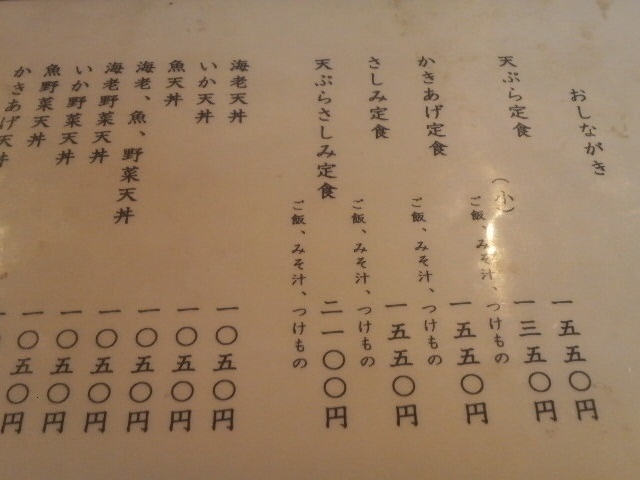 おしながき
天ぷら定食 一五五〇円
(小) 一三五〇円
ご飯、みそ汁、つけもの
かきあげ定食 一五五〇円
ご飯、みそ汁、つけもの
さしみ定食 一五五〇円
ご飯、みそ汁、つけもの
天ぷらさしみ定食 二一〇〇円
ご飯、みそ汁、つけもの
海老天丼 一〇五〇円
いか天丼 一〇五〇円
魚天丼 一〇五〇円
海老、魚、野菜天丼 一〇五〇円
海老野菜天丼 一〇五〇円
いか野菜天丼 一〇五〇円
魚野菜天丼
かきあげ天丼